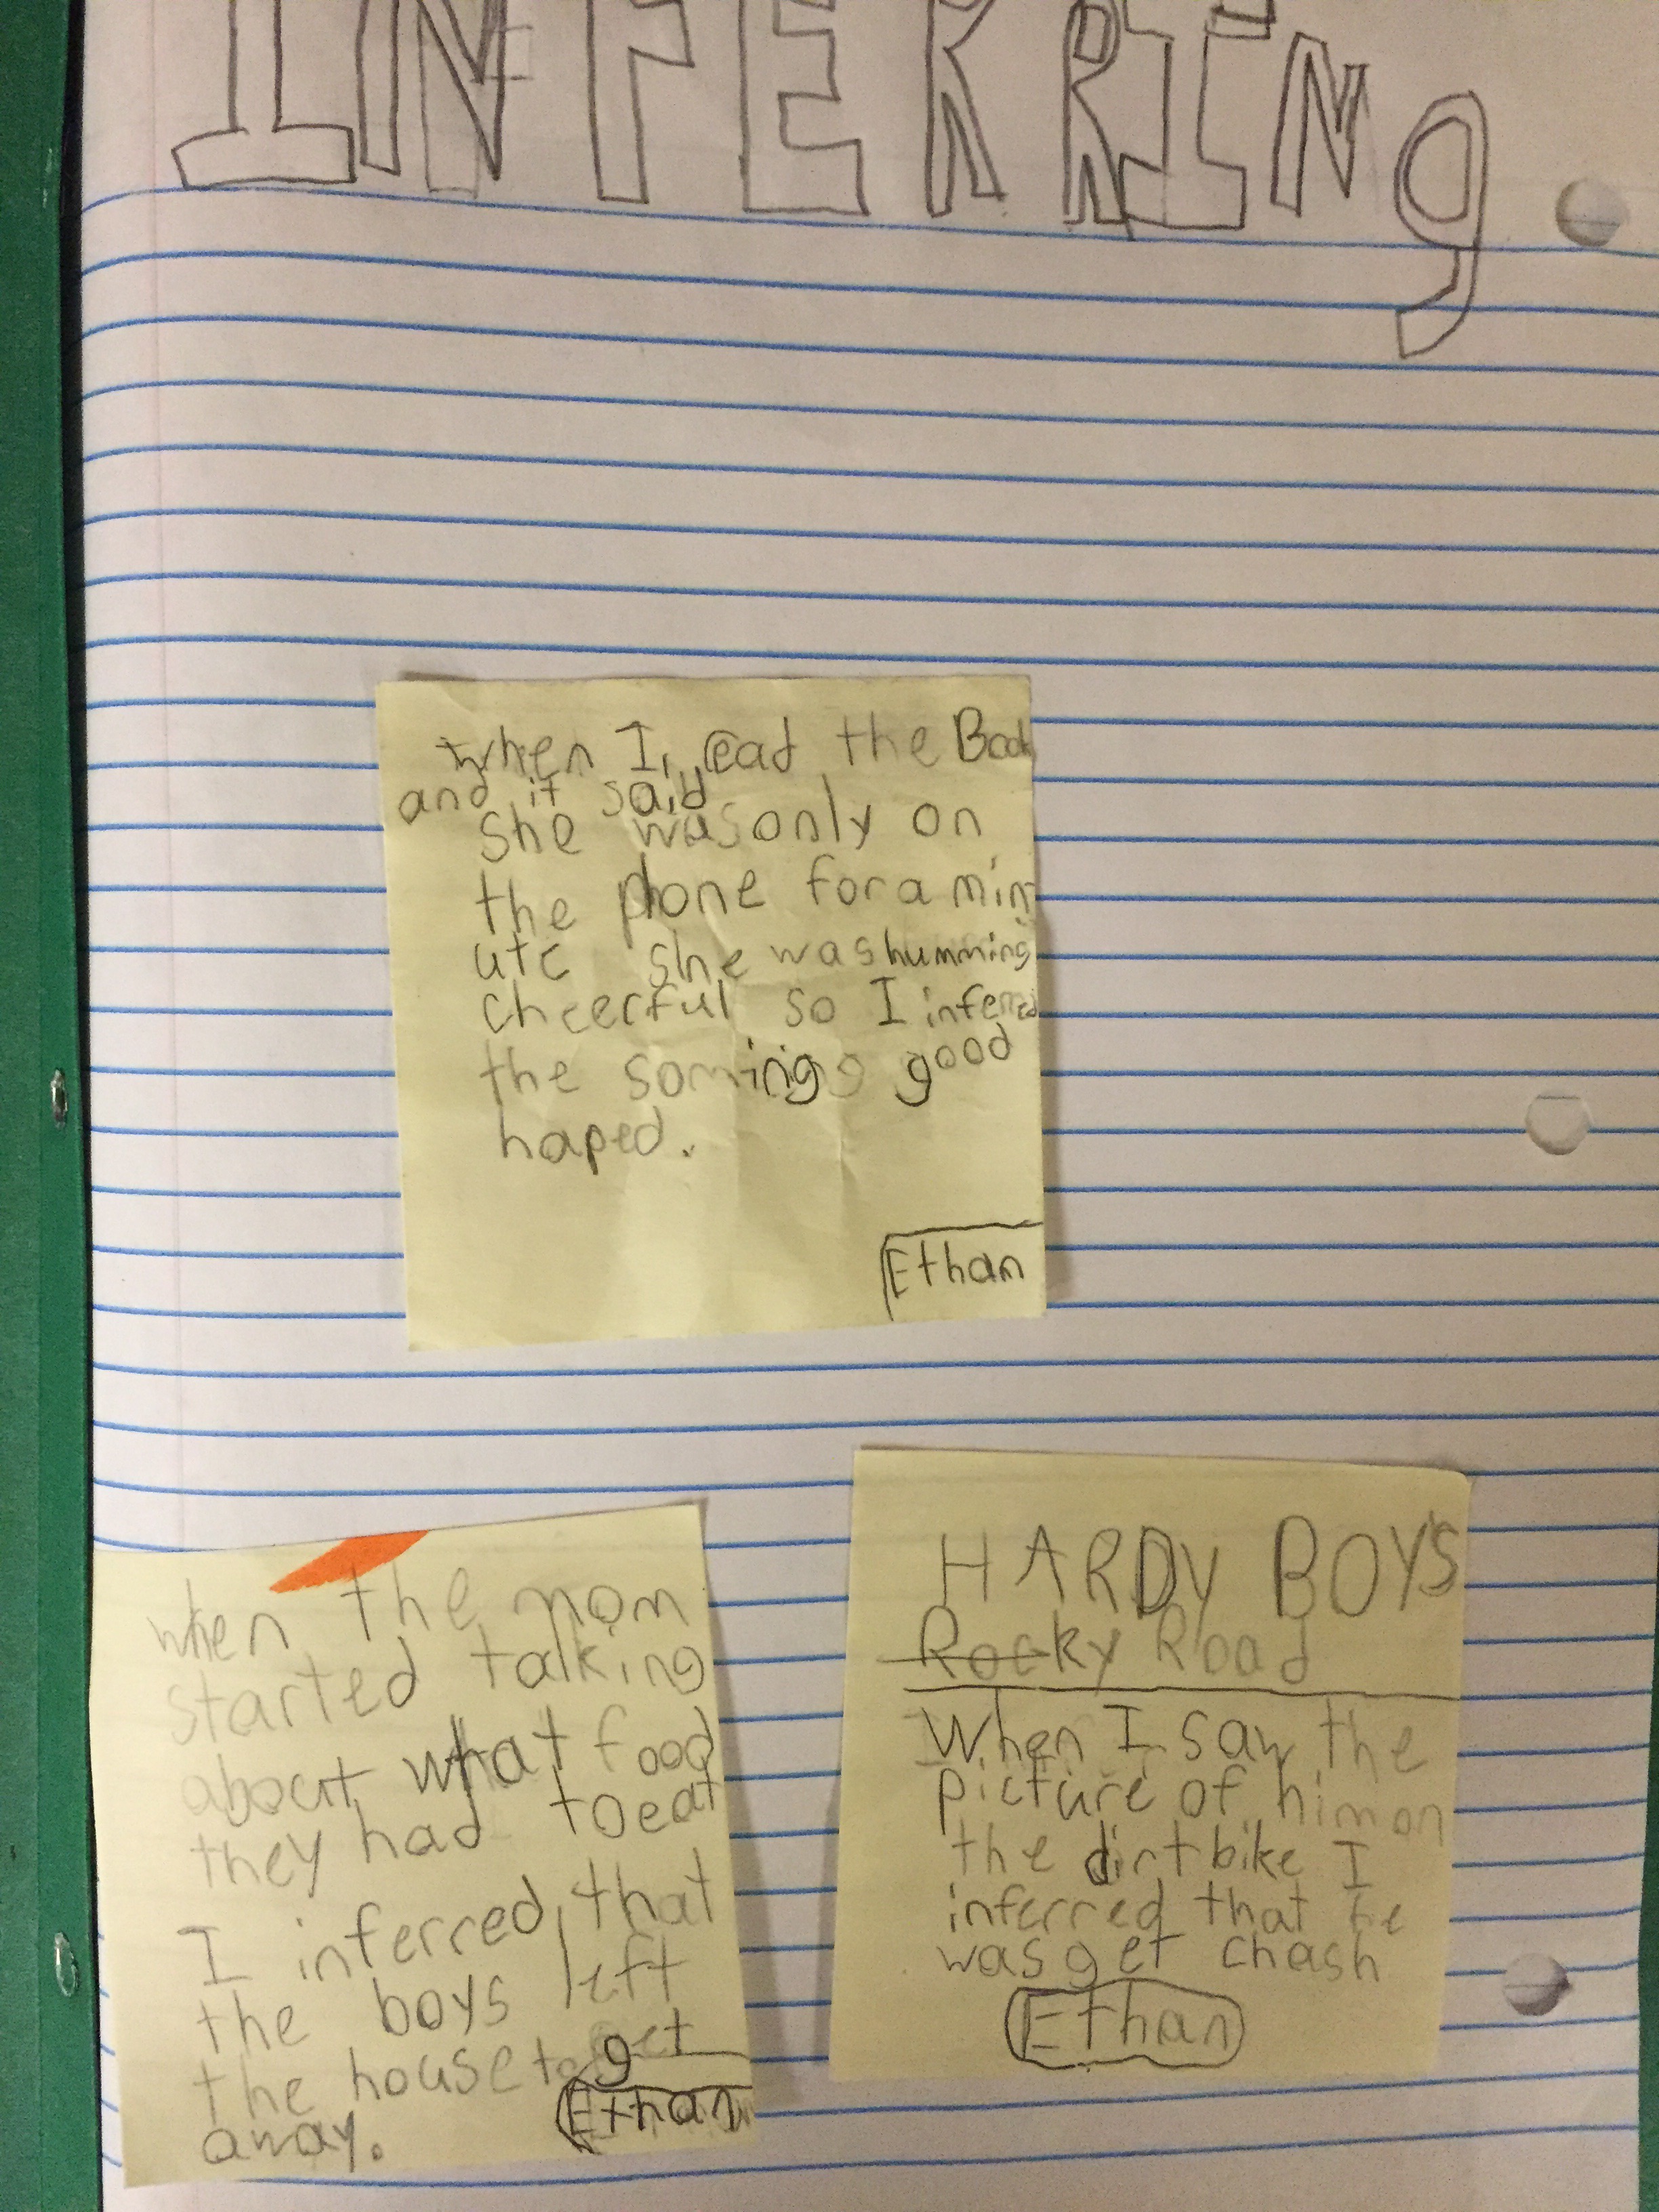 INFERRINg
when I read the Book
and it said
she was only on
the phone for a min
ute she was humming
cheerful so I inferred
the soming good
haped.
Ethan
when the mom
started talking
about what food
they had to eat
I inferred that
the boys left
the house to get
away.
Ethan
HARDY BOYS
Rocky Road
When I saw the
picture of him on
the dirt bike I
inferred that he
was get chash
Ethan